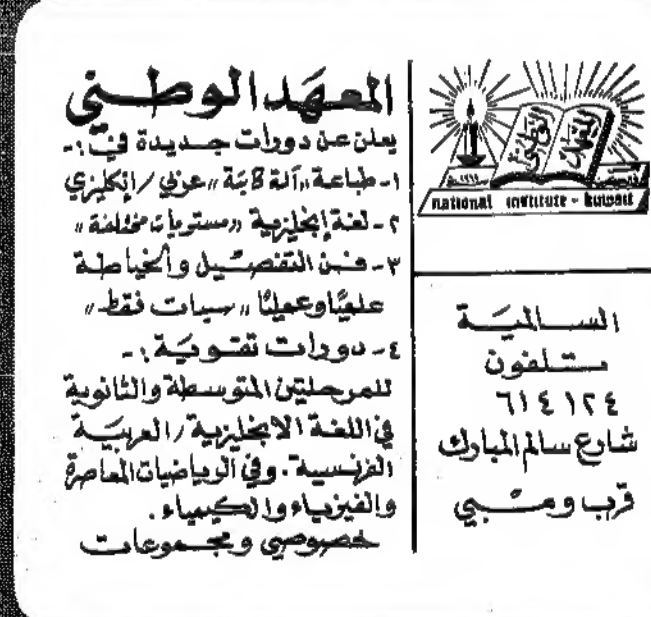 المعهد الوطني
يعلن عن دورات جديدة في :-
١- طباعة „ آلة كاتبة „ عربي / إنكليزي
٢- لغة إنجليزية „ مستويات مختلفة „
٣- فن التفصيل والخياطة
علميًا وعمليًا „ سيدات فقط „
٤- دورات تقوية :-
للمرحلتين المتوسطة والثانوية
في اللغة الانجليزية / العربية
الفرنسية . وفي الرياضيات المعاصرة
والفيزياء والكيمياء .
خصوصي ومجموعات
المعهد الوطني
national institute - kuwait
السالمية
تلفون
٦١٤١٢٤
شارع سالم المبارك
قرب ومبي